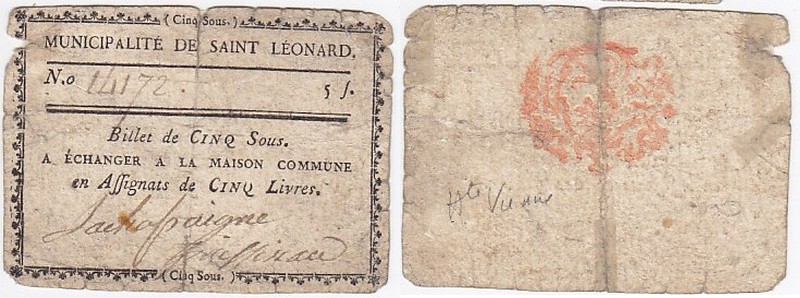 ( Cinq Sous. )
MUNICIPALITÉ DE SAINT LÉONARD.
N.o 14172 5 ſ.
Billet de CINQ Sous.
A ÉCHANGER A LA MAISON COMMUNE
en Aſſignats de CINQ Livres.
( Cinq Sous. )
Hte Vienne